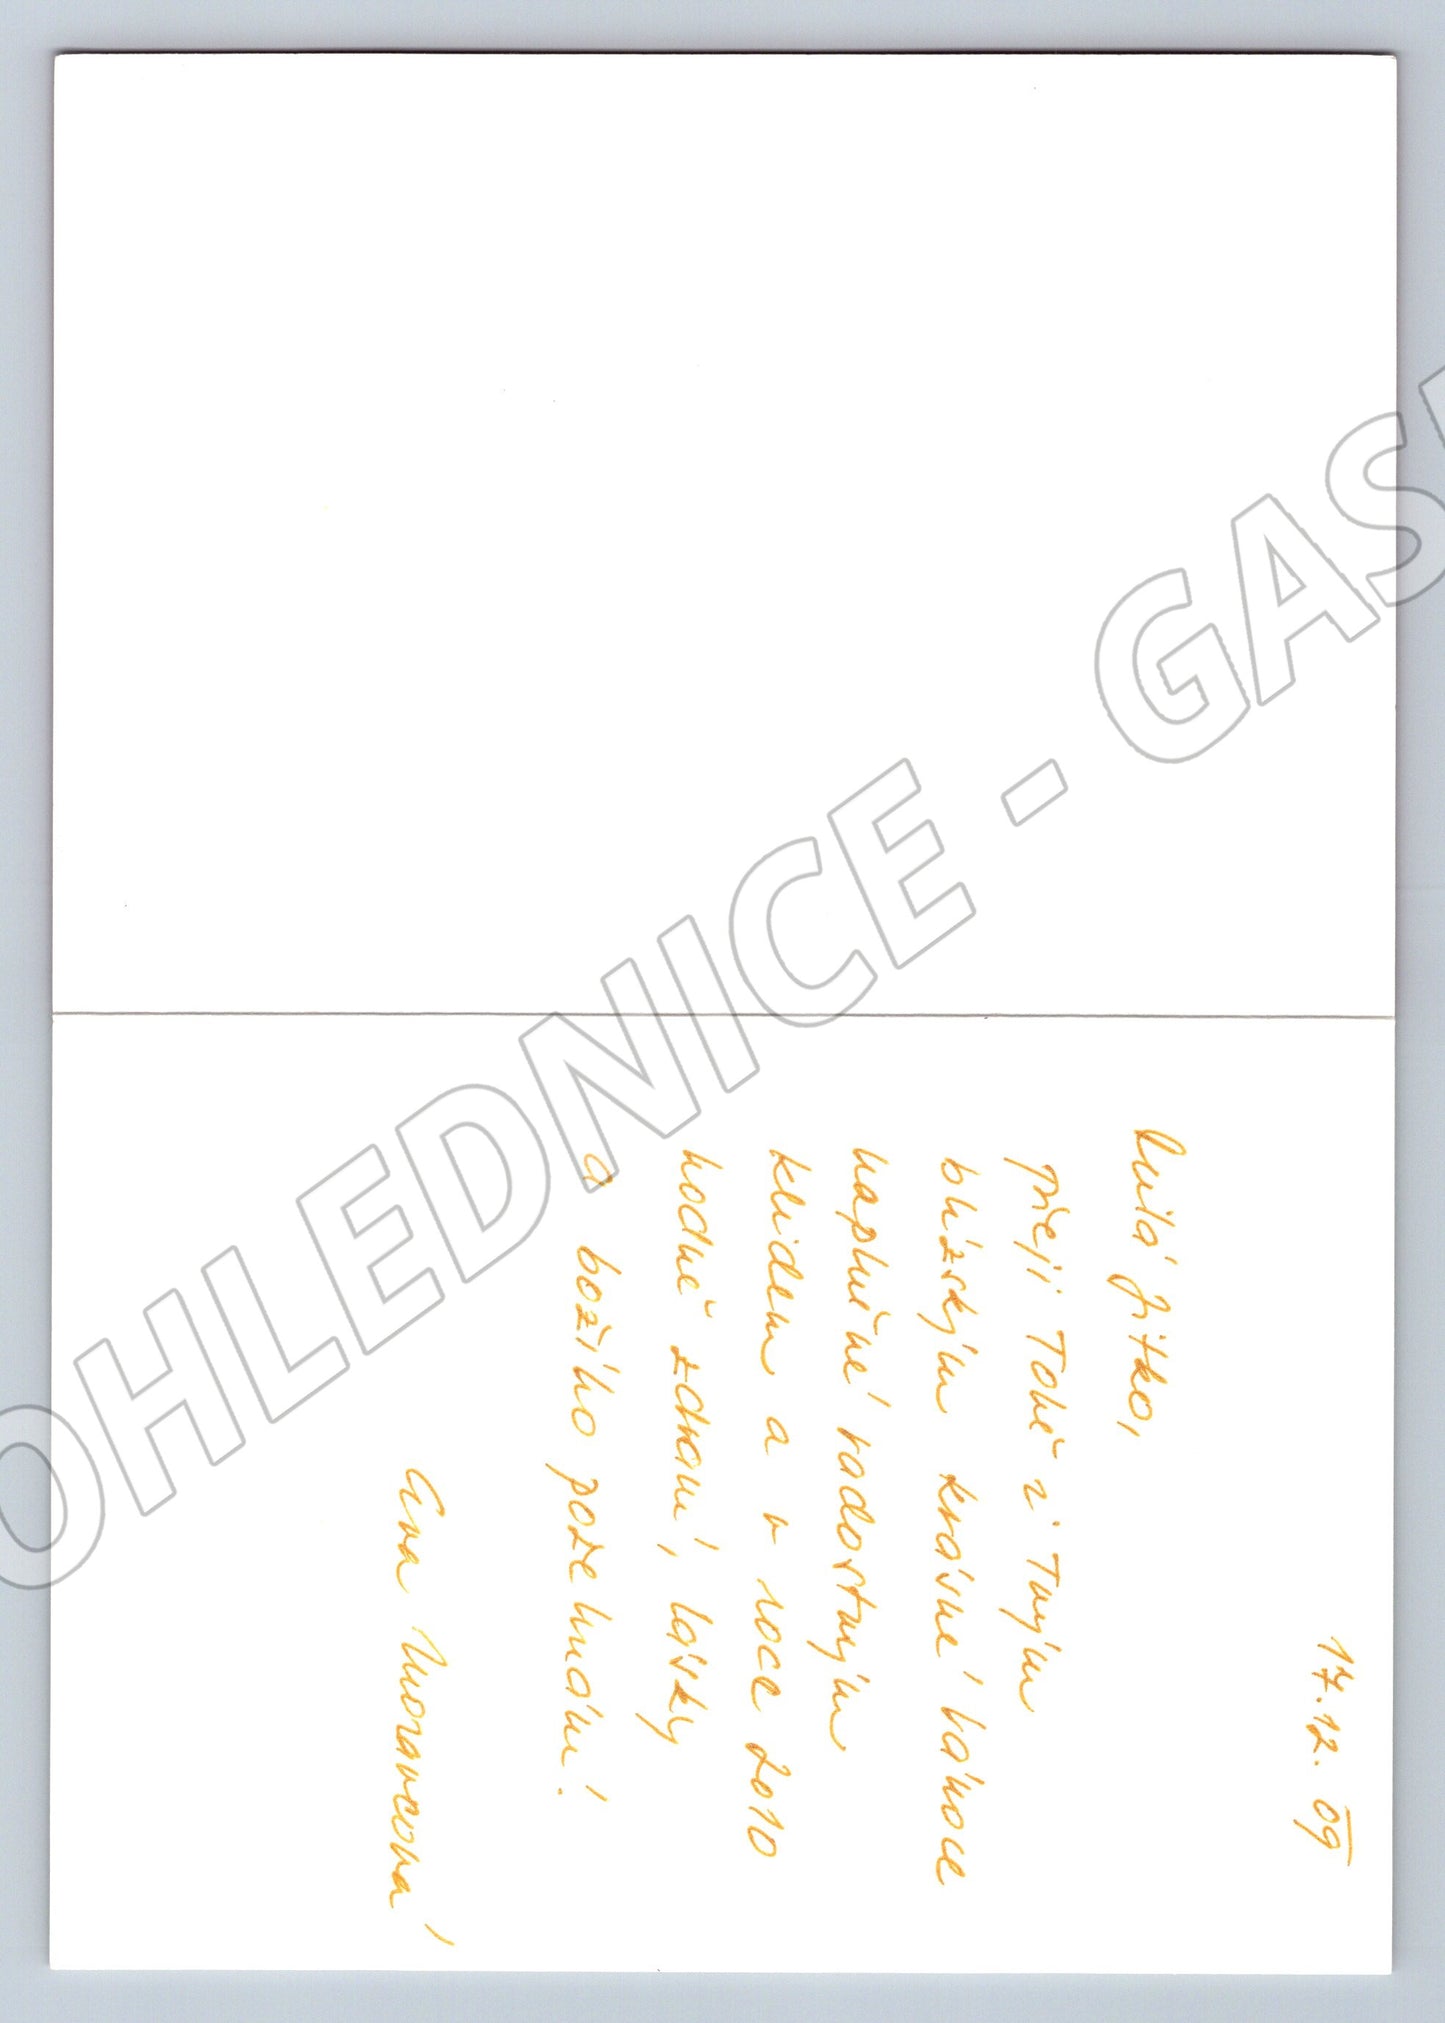 17.12.09
Milá Jitko,
přeji Tobě i Tvým
blízkým krásné vánoce
naplněné radostným
klidem a v roce 2010
hodně zdraví, lásky
a božího požehnání!
Eva Moravcová
OHLEDNICE - GAS